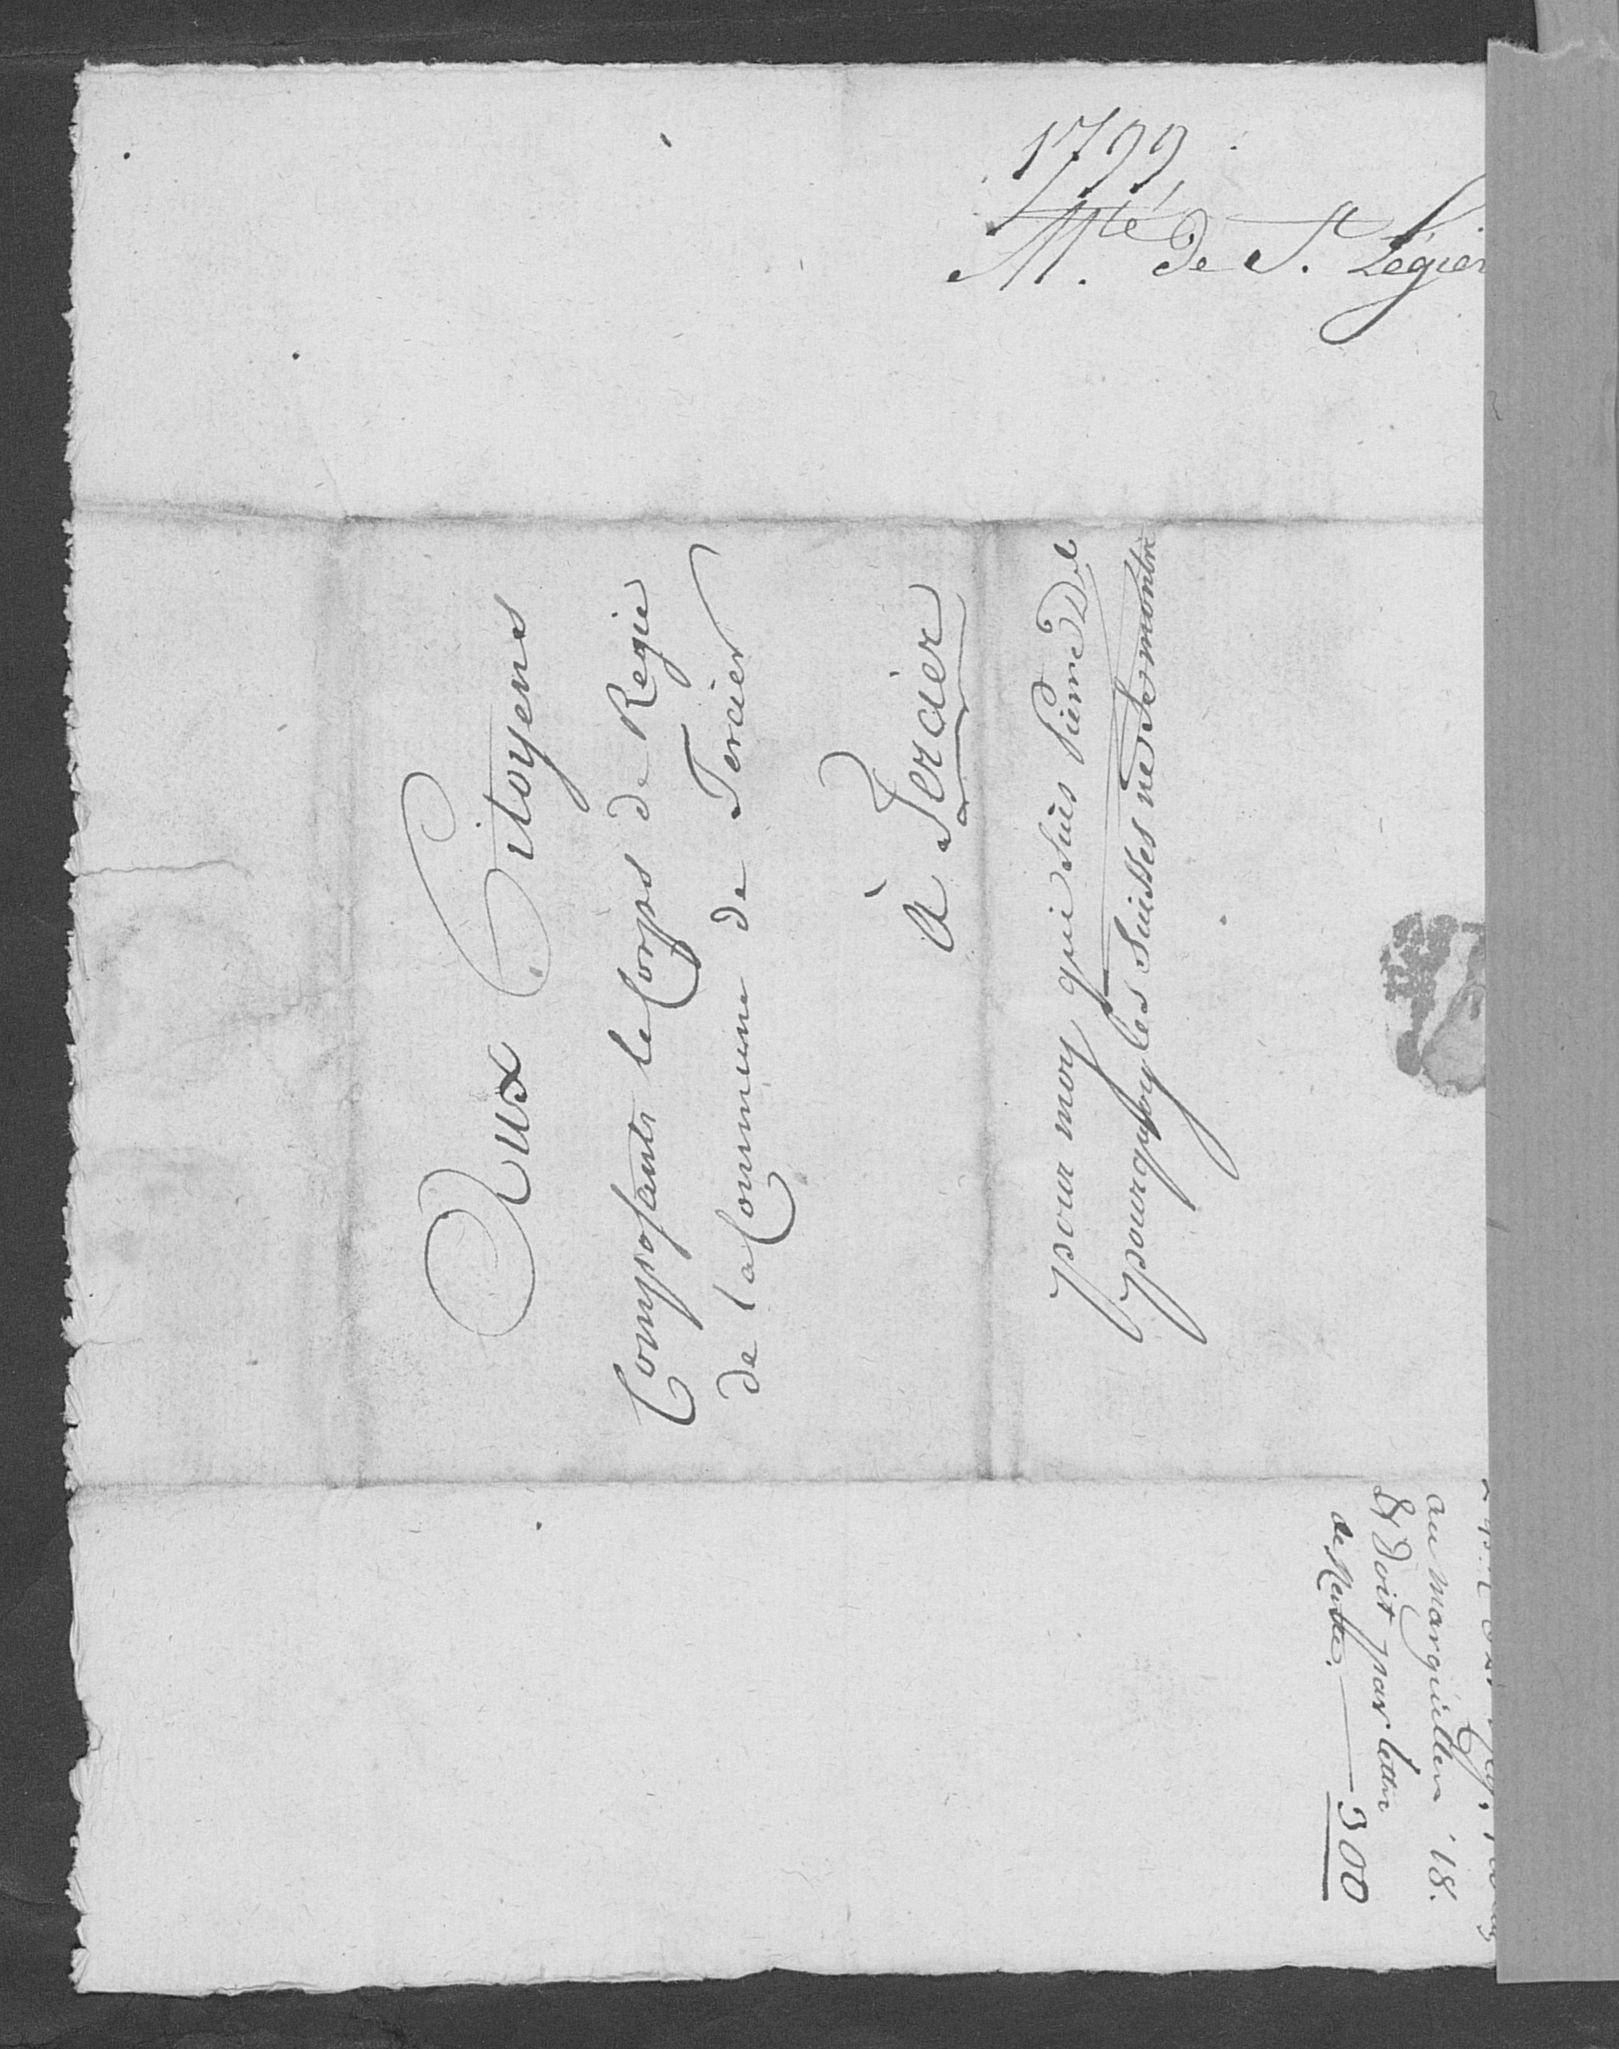 1799
M.té de St. Légier
Aux Citoyens
Composants le Corps de Regie
de la Commune de Tercier
à Tercier
pour moy qui suis Pierre D
pourquoy les Suisses ne se montre
au marguillier 18.
Et Doit par lettre
de Rente. 300